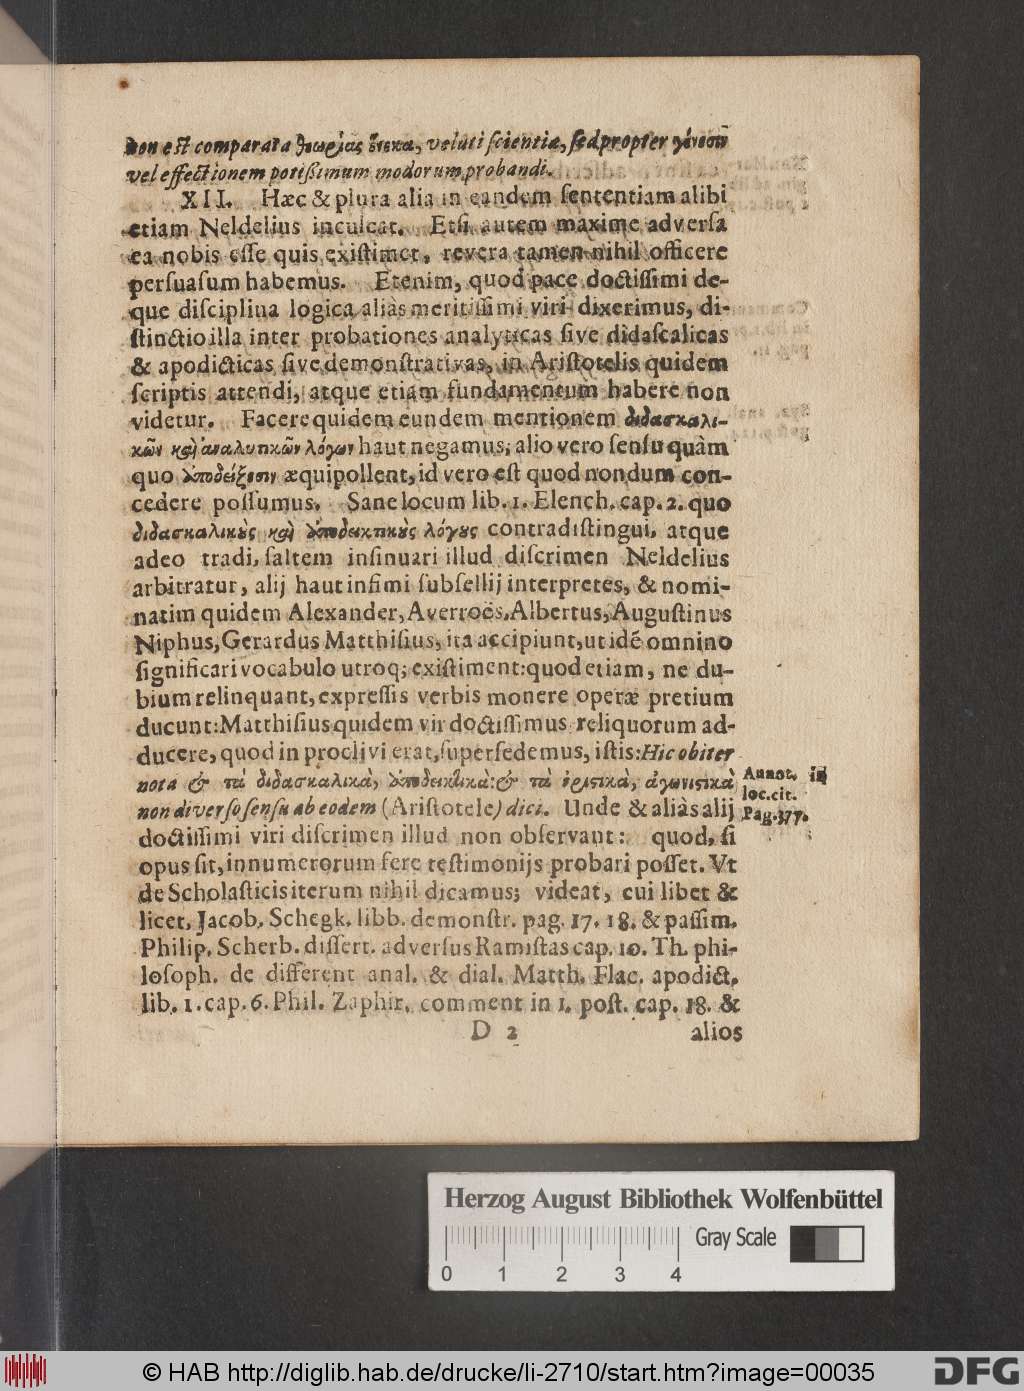 non est comparata θεωρίας ἕνεκα, veluti scientiæ, sed propter γένεσιν
vel effectionem potissimum modorum probandi.
XII. Hæc & plura alia in eandem sententiam alibi
etiam Neldelius inculcat. Etsi autem maxime adversa
ea nobis esse quis existimet, revera tamen nihil officere
persuasum habemus. Etenim, quod pace doctissimi de-
que disciplina logica aliàs meritissimi viri dixerimus, di-
stinctio illa inter probationes analyticas sive didascalicas
& apodicticas sive demonstrativas, in Aristotelis quidem
scriptis attendi, atque etiam fundamentum habere non
videtur. Facere quidem eundem mentionem διδασκαλι-
κῶν καὶ ἀναλυτικῶν λόγων haut negamus; alio vero sensu quàm
quo ἀποδείξεσιν æquipollent, id vero est quod nondum con-
cedere possumus. Sane locum lib. 1. Elench. cap. 2. quo
διδασκαλικοὺς καὶ ἀποδεικτικοὺς λόγους contradistingui, atque
adeo tradi, saltem insinuari illud discrimen Neldelius
arbitratur, alij haut infimi subsellij interpretes, & nomi-
natim quidem Alexander, Averroës, Albertus, Augustinus
Niphus, Gerardus Matthisius, ita accipiunt, ut idē omnino
significari vocabulo utroq; existiment: quod etiam, ne du-
bium relinquant, expressis verbis monere operæ pretium
ducunt: Matthisius quidem vir doctissimus reliquorum ad-
ducere, quod in proclivi erat, supersedemus, istis: Hic obiter
nota & τὰ διδασκαλικὰ, ἀποδεικτικὰ: & τὰ ἐριστικὰ, ἀγωνιστικὰ
non diverso sensu ab eodem (Aristotele) dici. Unde & aliàs alij
Annot. in
loc. cit.
Pag. 377.
doctissimi viri discrimen illud non observant: quod, si
opus sit, innumerorum fere testimonijs probari posset. Vt
de Scholasticis iterum nihil dicamus; videat, cui libet &
licet, Jacob. Schegk. libb. demonstr. pag. 17. 18. & passim.
Philip. Scherb. dissert. adversus Ramistas cap. 10. Th. phi-
losoph. de different anal. & dial. Matth. Flac. apodict.
lib. 1. cap. 6. Phil. Zaphir. comment in 1. post. cap. 18. &
D 2
alios
Herzog August Bibliothek Wolfenbüttel
Gray Scale
0 1 2 3 4
© HAB http://diglib.hab.de/drucke/li-2710/start.htm?image=00035
DFG